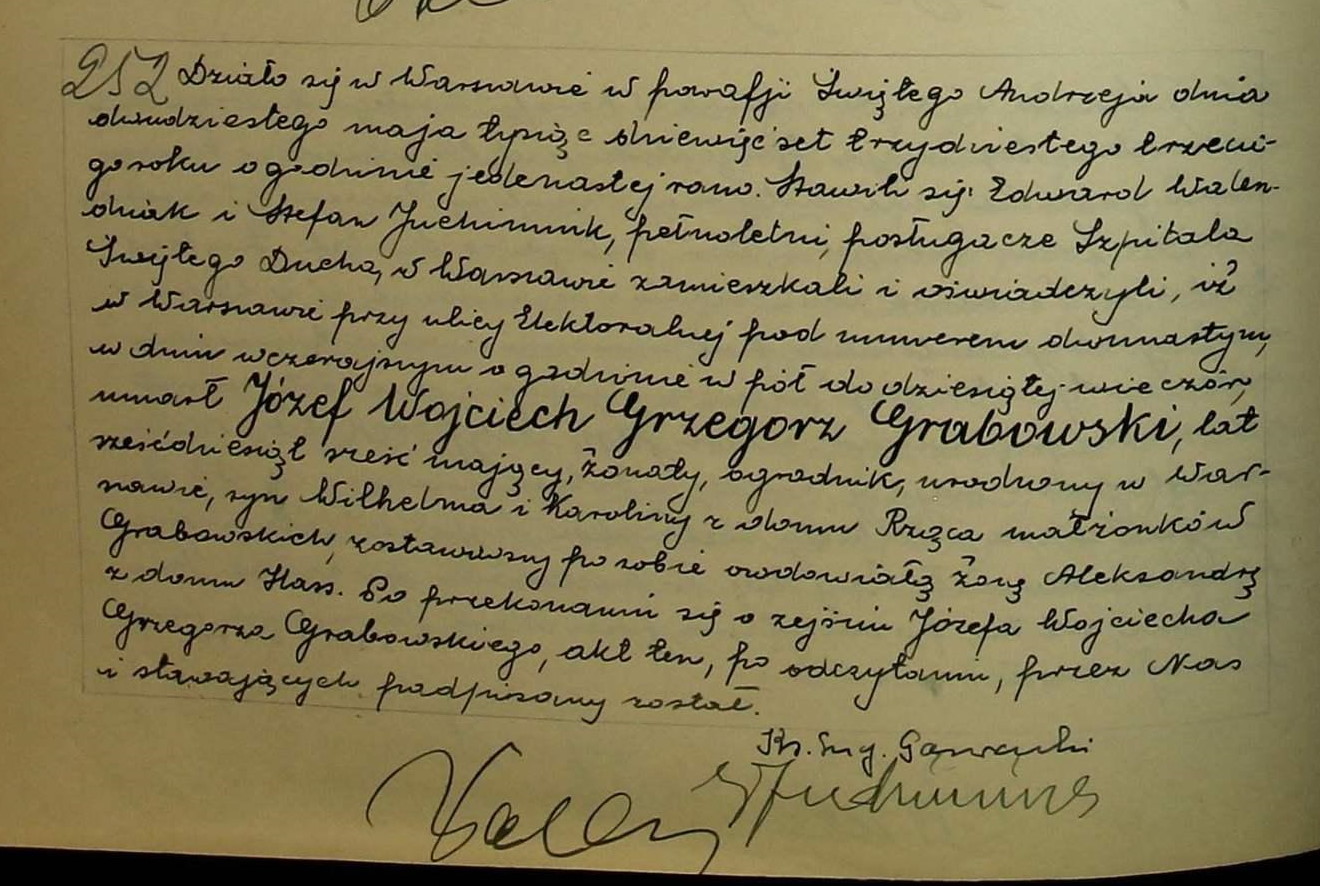 252 Działo się w Warszawie w parafji Świętego Andrzeja dnia
dwudziestego maja tysiąc dziewięćset trzydziestego trzecie-
go roku o godzinie jedenastej rano. Stawili się: Edward Walen-
dziak i Stefan Juchimnik, pełnoletni, posługacze Szpitala
Świętego Ducha, w Warszawie zamieszkali i oświadczyli, iż
w Warszawie przy ulicy Elektoralnej pod numerem dwunastym,
w dniu wczorajszym o godzinie w pół do dziesiątej wieczór,
umarł Józef Wojciech Grzegorz Grabowski, lat
sześćdziesiąt sześć mający, żonaty, ogrodnik, urodzony w War-
szawie, syn Wilhelma i Karoliny z domu Rząca małżonków
Grabowskich, zostawiwszy po sobie owdowiałą żonę Aleksandrę
z domu Hass. Po przekonaniu się o zejściu Józefa Wojciecha
Grzegorza Grabowskiego, akt ten, po odczytaniu, przez Nas
i stawających podpisany został.
Ks.